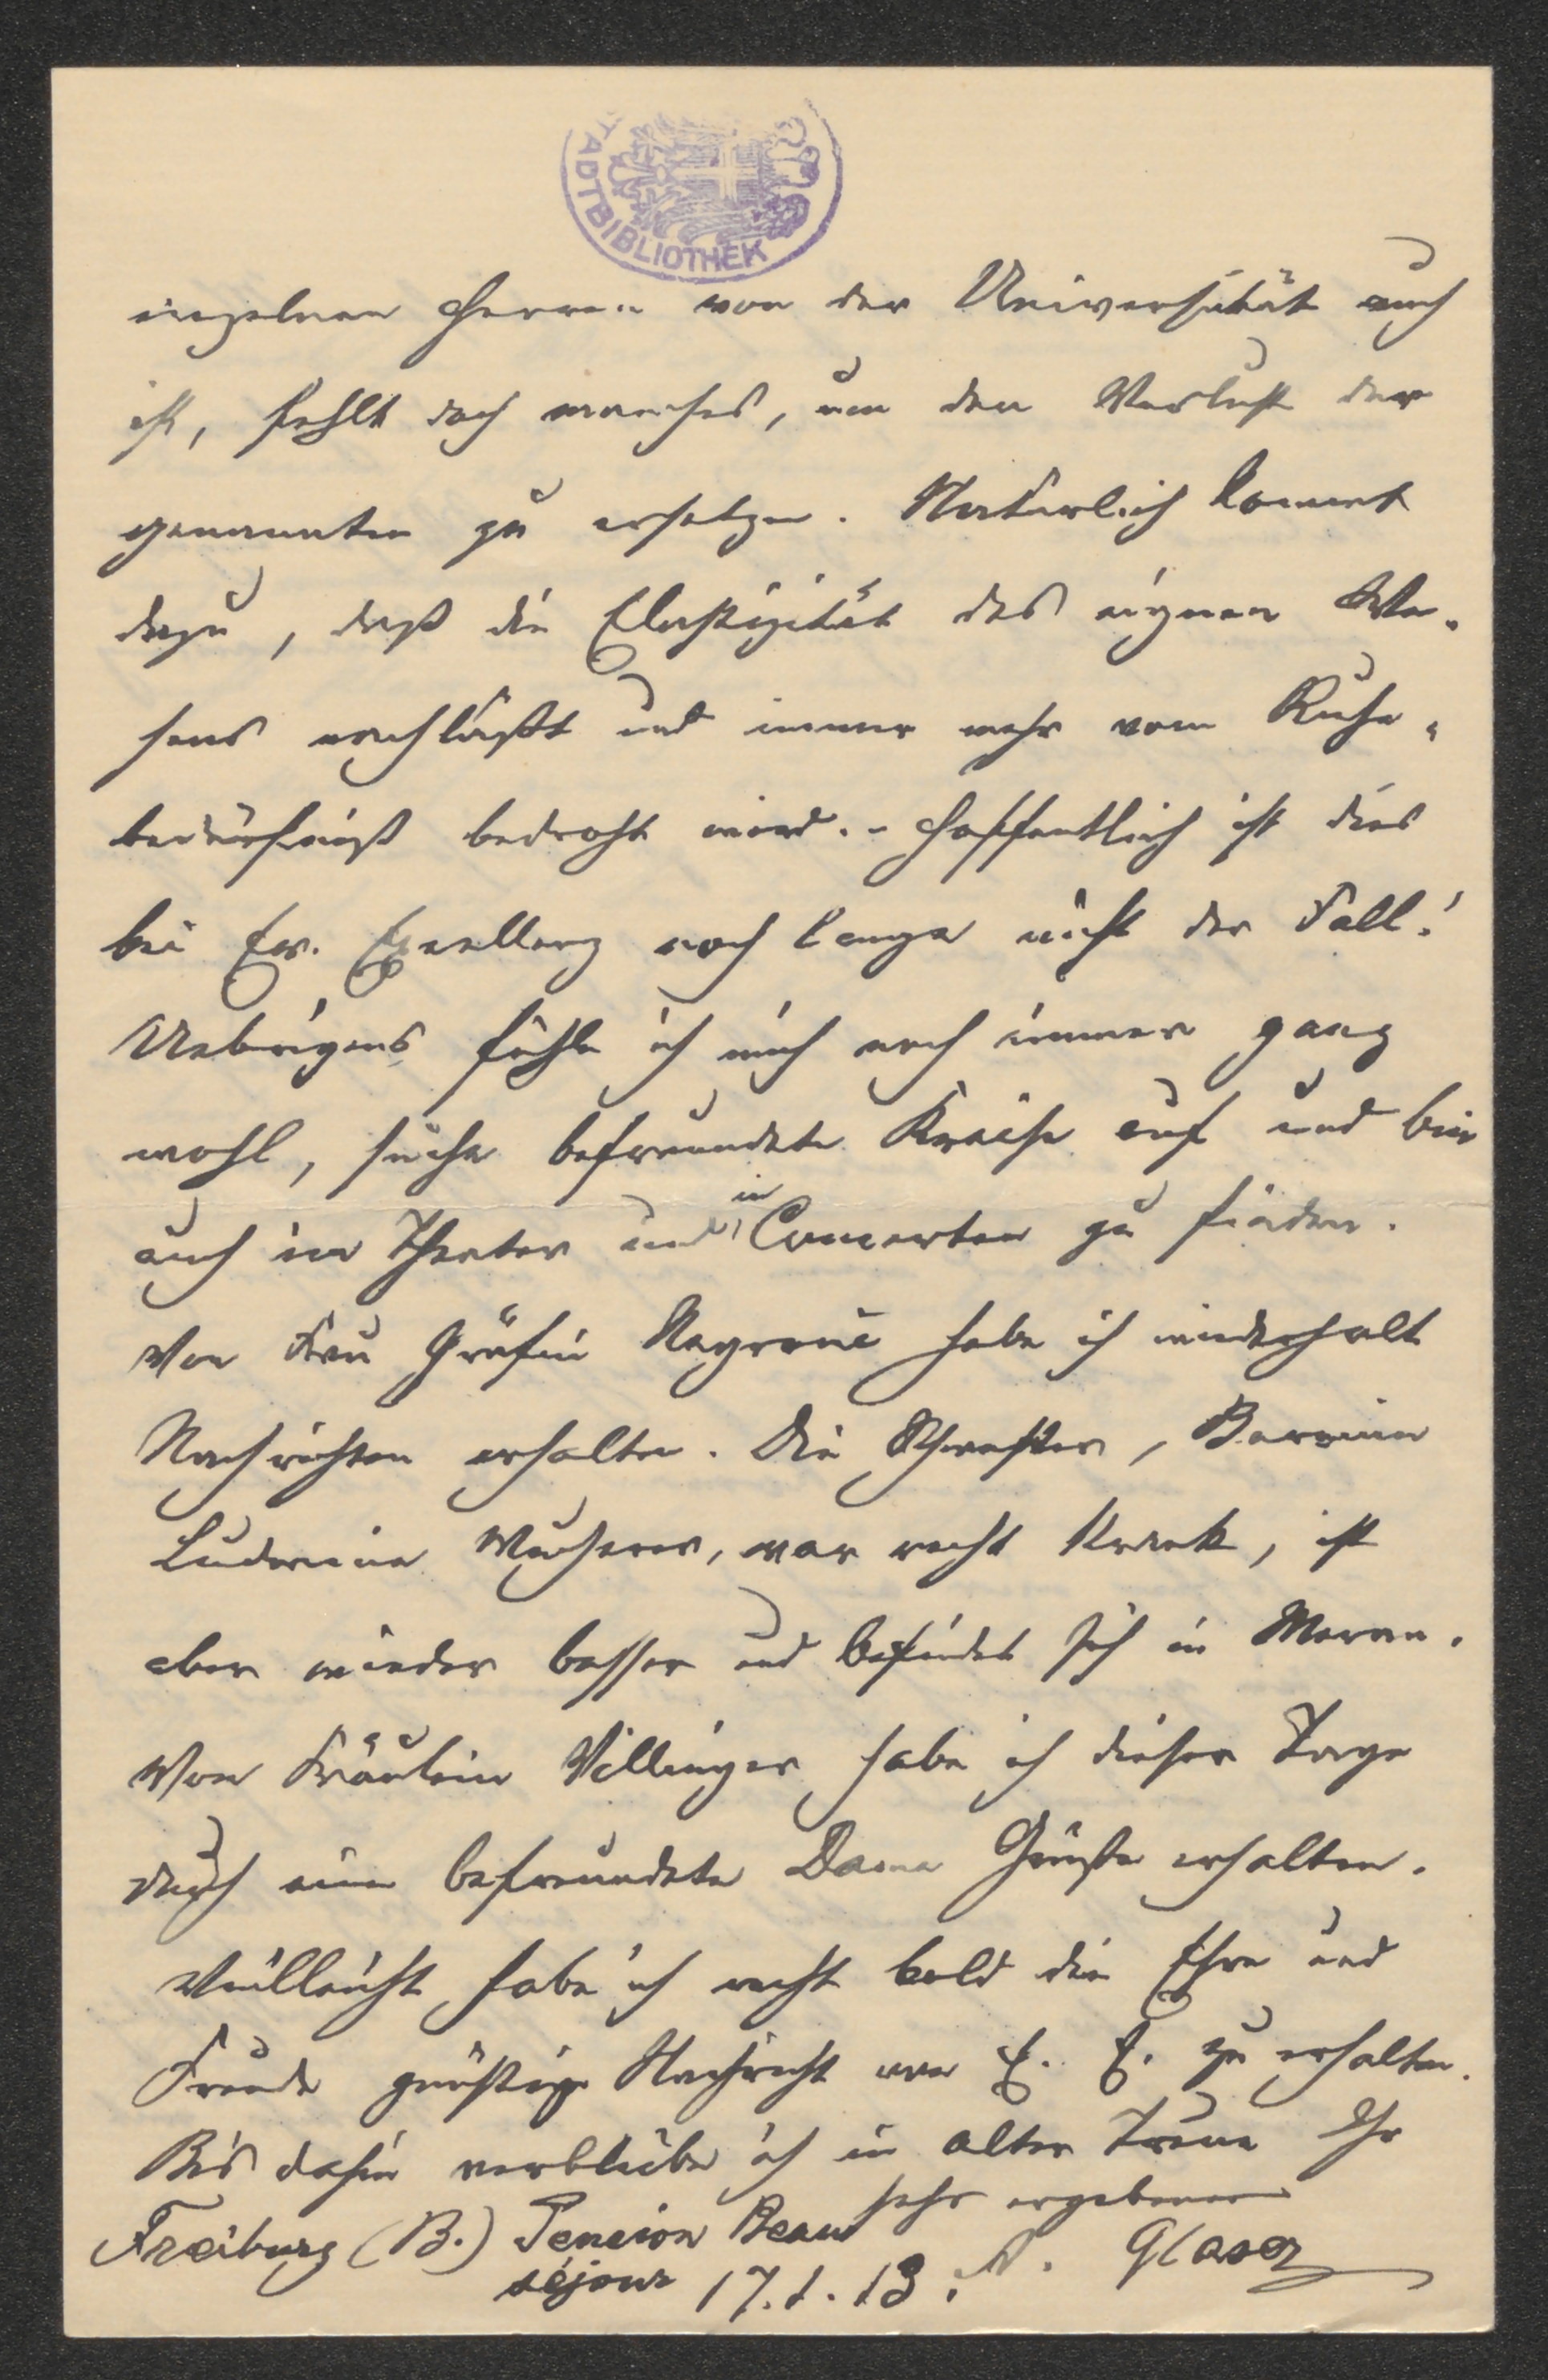 STADTBIBLIOTHEK
einzelnen Herren von der Universität auch
ist, fehlt doch manches, um den Verlust der
genannten zu ersetzen. Natürlich kommt
dazu, daß die Elastizität des eignen We-
sens nachläßt und immer mehr vom Ruhe-
bedürfniß bedroht wird. - Hoffentlich ist dies
bei Ew. Exzellenz noch lange nicht der Fall!
Uebrigens fühle ich mich noch immer ganz
wohl, suche befreundete Kreise auf und bin
auch im Theater und in Concerten zu finden.
Von Frau Gräfin habe ich wiederholt
Nachrichten erhalten. Die Schwester, Baronin
Wucherer, war recht krank, ist
aber wieder besser und befindet sich in Meran.
Von Fräulein Villinger habe ich dieser Tage
durch eine befreundete Dame Grüße erhalten.
Vielleicht habe ich recht bald die Ehre und
Freude günstige Nachricht von E. E. zu erhalten.
Bis dahin verbleibe ich in alter Treue Ihr
sehr ergebener
Freiburg (B.) Pension Beau
séjour 17.1.13. A. Glaser